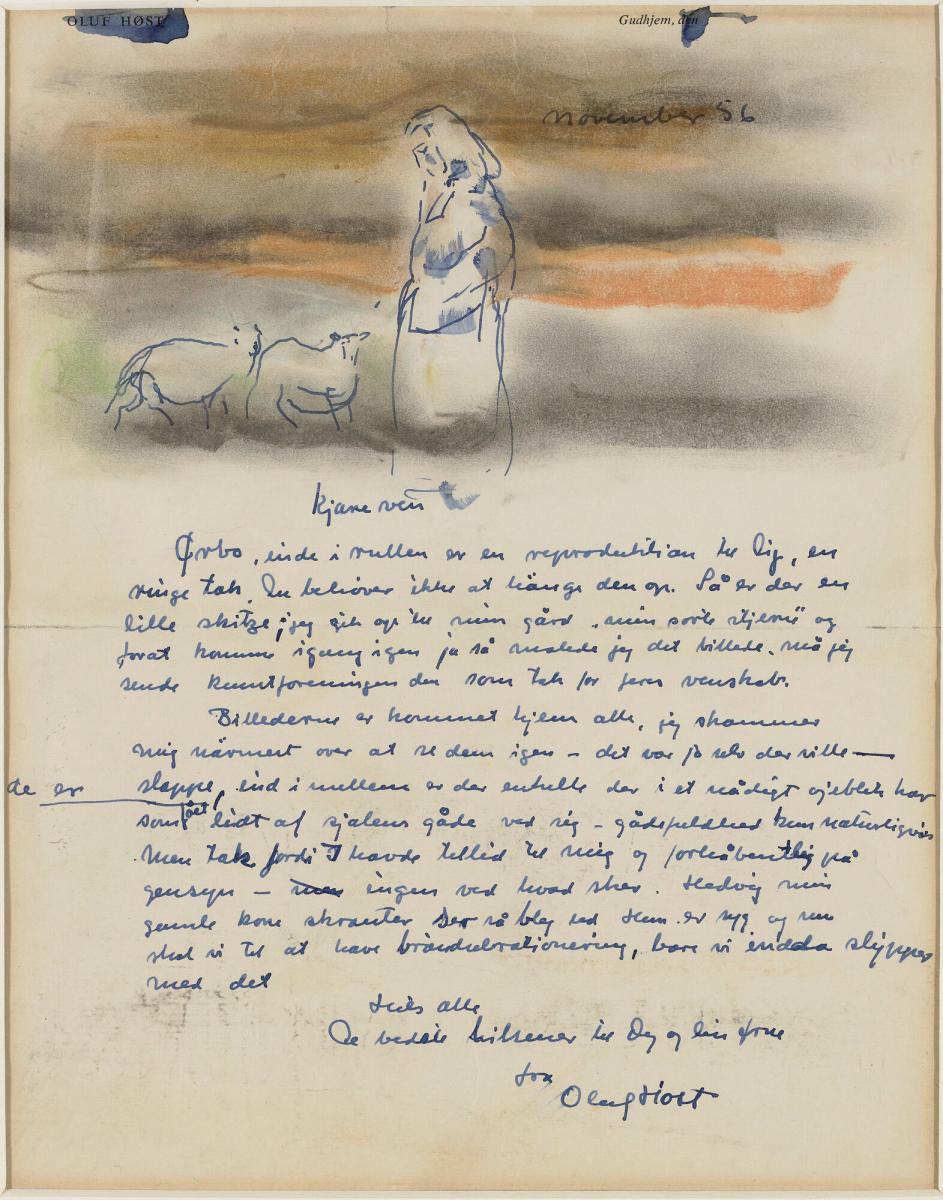 OLUF HØST
Gudhjem, den
november 56
kjære ven
Ørbo, inde i rullen er en reproduktion til Dig, en
ringe tak. Du behøver ikke at hänge den op. Så er der en
lille skitze, jeg gik op til min gård "min sorte stjerne" og
forat komme igang igen ja så malede jeg det billede. må jeg
sende kunstforeningen den som tak for jeres venskab.
Billederne er kommet hjem alle, jeg skammer
mig närmest over at se dem igen – det var jo selv der ville
de er sløppe, ind i mellem er der enkelte der i et nådigt øjeblik har
som fået lidt af sjælens gåde ved sig – gådefuldhed kun naturligvis
Men tak fordi I havde tillid til mig og forhåbentlig på
gensyn – men ingen ved hvad sker. Hedvig min
gamle kone skranter ser så bleg ud Hun er syg og nu
skal vi til at have brändselsrationering, bare vi endda slipper
med det
Hils alle
De bedste hilsener til Dig og din frue
fra
Oluf Høst